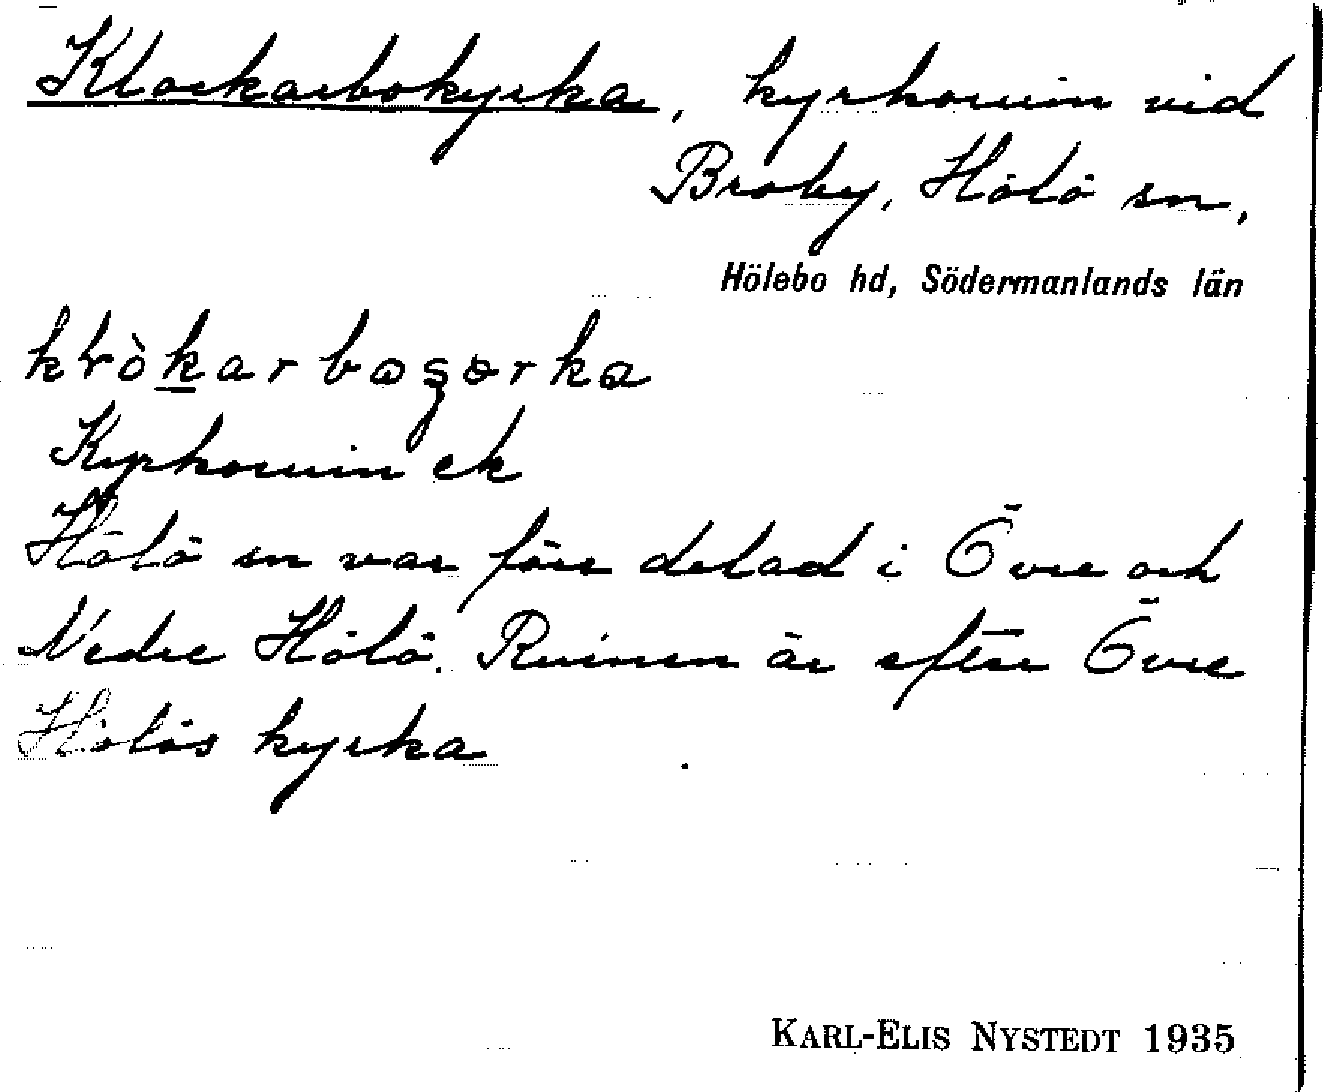 Klockarbokyrka, kyrkoruin vid
Broby, Hölö sn,
Hölebo hd, Södermanlands län
Kyrkoruin ek
Hölö sn var förr delad i Övre och
Nedre Hölö. Ruinen är efter Övre
Hölös kyrka
KARL-ELIS NYSTEDT 1935